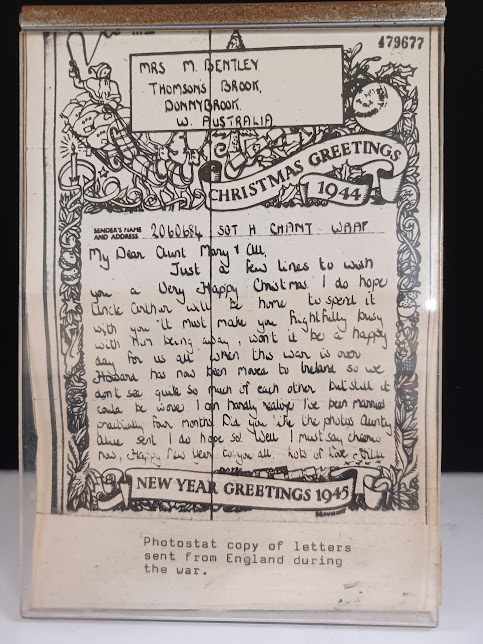 479677
MRS M. BENTLEY
THOMSONS BROOK,
DONNYBROOK.
W. AUSTRALIA
CHRISTMAS GREETINGS
1944
SENDER'S NAME
AND ADDRESS 2060684 SGT H CHANT WAAF
My Dear Aunt Mary & All,
Just a few lines to wish
you a Very Happy Christmas. I do hope
Uncle Arthur will be home to spend it
with you. It must make you frightfully busy
with him being away, won't it be a happy
day for us all when this war is over
Howard has now been moved to Ireland so we
don't see quite so much of each other but still it
could be worse. I can hardly realize I've been married
practically four months. Did you like the photos Aunty
sent I do hope so. Well I must say cheerio
now, Happy New Year to you all, lots of love
NEW YEAR GREETINGS 1945
Photostat copy of letters
sent from England during
the war.